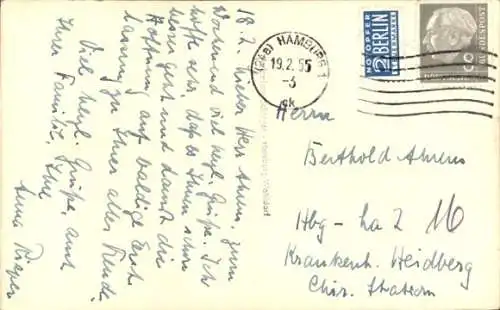 18. 2. Lieber Herr Ahrens. Zum
Wochenend viel herzl. Grüße. Ich
hoffe sehr, daß es Ihnen schon
besser geht und damit die
Hoffnung auf baldige Entlassung
zu Ihrer aller Freude.
Viel herzl. Grüße, auch
Ihrer Familie, Ihre
Anna Rieper
(24a) HAMBURG 1
19.2.55
-6
ck
NOTOPFER
2 BERLIN
STEUERMARKE
DEUTSCHE BUNDESPOST
Herrn
Berthold Ahrens
Hbg - ha 2 16
Krankenh. Heidberg
Chir. Station